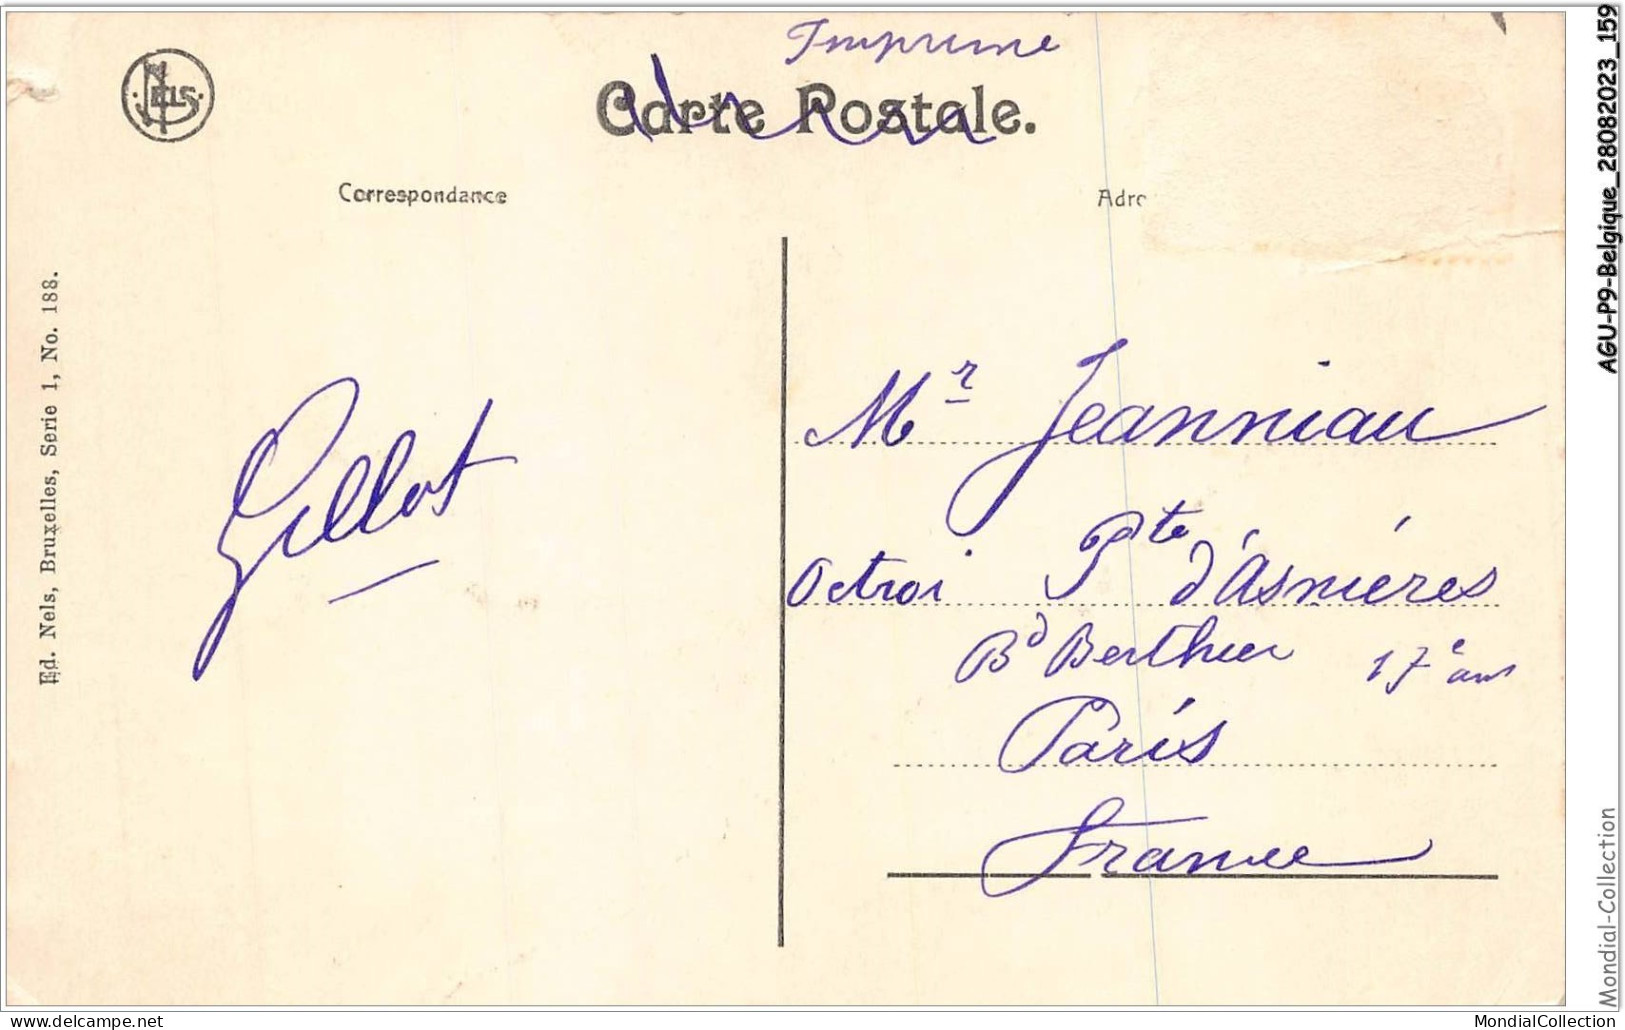 Imprimé
NELS
Carte Postale.
Correspondance
Adre
Ed. Nels, Bruxelles, Serie 1, No. 188.
Gillot
Mr Jeanniau
Octroi Pte d'Asnières
Bd Berthier 17e arr
Paris
France
AGU-P9-Belgique_28082023_159
Mondial-Collection
delcampe.net
MondialCollection